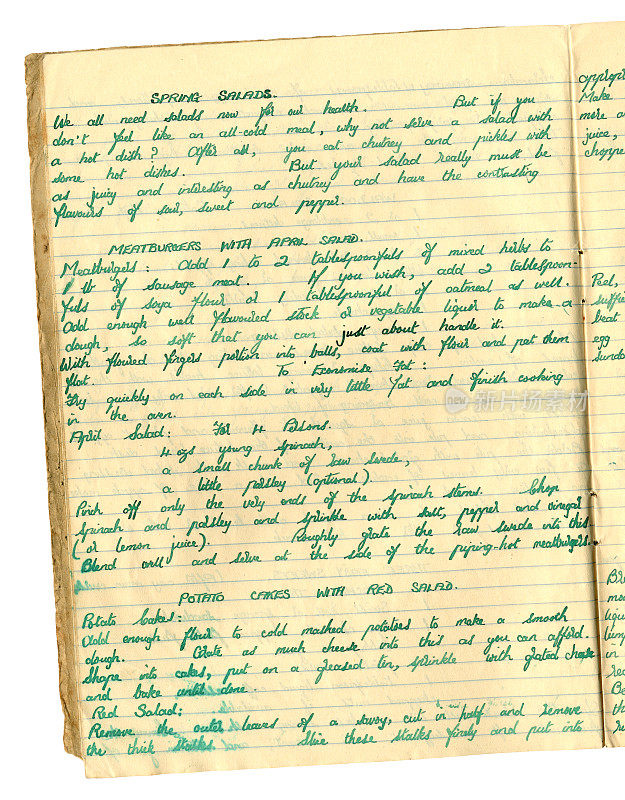 SPRING SALADS.
We all need salads now for our health. But if you
don't feel like an all-cold meal, why not serve a salad with
a hot dish? After all, you eat chutney and pickles with
some hot dishes. But your salad really must be
as juicy and interesting as chutney and have the contrasting
flavours of sour, sweet and pepper.
MEATBURGERS WITH APRIL SALAD.
Meatburgers: Add 1 to 2 tablespoonfuls of mixed herbs to
1 lb of sausage meat. If you wish, add 2 tablespoon-
fuls of soya flour or 1 tablespoonful of oatmeal as well.
Add enough well flavoured stock or vegetable liquor to make a
dough, so soft that you can just about handle it.
With floured fingers portion into balls, coat with flour and pat them
flat. To Economise Fat:
Fry quickly on each side in very little fat and finish cooking
in the oven.
April Salad: For 4 Persons.
4 ozs young spinach,
a small chunk of raw swede,
a little parsley (optional).
Pinch off only the very ends of the spinach stems. Chop
spinach and parsley and sprinkle with salt, pepper and vinegar
(or lemon juice). Roughly grate the raw swede into this.
Blend well and serve at the side of the piping-hot meatburgers.
POTATO CAKES WITH RED SALAD.
Potato Cakes:
Add enough flour to cold mashed potatoes to make a smooth
dough. Grate as much cheese into this as you can afford.
Shape into cakes, put on a greased tin, sprinkle with grated cheese
and bake until done.
Red Salad:
Remove the outer leaves of a savoy, cut in half and remove
the thick stalks. Slice these stalks finely and put into
Make
more
juice,
Peel,
beat
egg
in
new 新片场素材